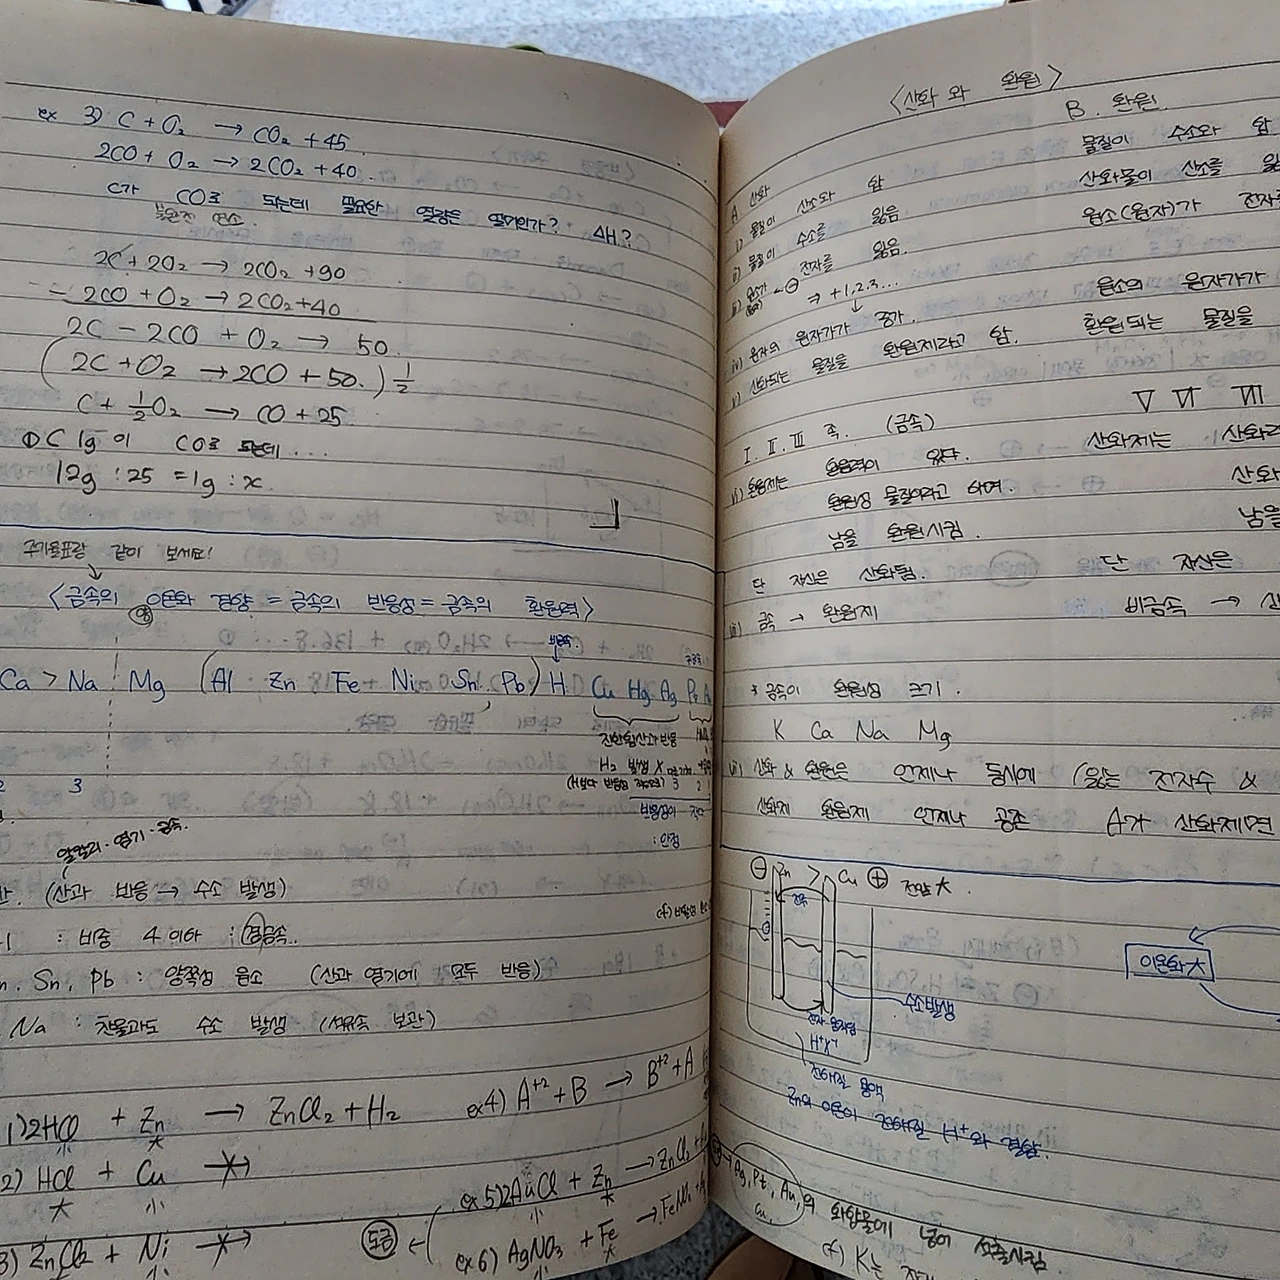 ex 3) C + O₂ → CO₂ + 45
2CO + O₂ → 2CO₂ + 40.
C가 CO로 되는데 필요한 열량은 얼마인가? ΔH?
불완전 연소
2C + 2O₂ → 2CO₂ + 90
- 2CO + O₂ → 2CO₂ + 40
2C - 2CO + O₂ → 50.
(2C + O₂ → 2CO + 50.) 1/2
C + 1/2 O₂ → CO + 25
① C 1g 이 CO로 되는데 ...
12g : 25 = 1g : x
주기율표랑 같이 보세요!
<금속의 이온화 경향 = 금속의 반응성 = 금속의 환원력>
비금속
Ca > Na Mg (Al Zn Fe Ni Sn Pb) H Cu Hg Ag Pt Au
진한 황산과 반응
H₂ 발생 X
3
반응성이 작다
: 안정
알칼리·염기·금속.
(산과 반응 → 수소 발생)
: 비중 4 이하 : 경금속..
Sn, Pb : 양쪽성 원소 (산과 염기에 모두 반응)
Na : 찬물과도 수소 발생 (석유속 보관)
1) 2HCl + Zn → ZnCl₂ + H₂
大
小
2) HCl + Cu
大 小
3) ZnCl₂ + Ni
ex 4) A⁺² + B → B⁺² + A
ex 5) 2AuCl + Zn → ZnCl₂ +
小 大
도금 ←
ex 6) AgNO₃ + Fe →
小 大
<산화 와 환원>
A 산화
i) 물질이 산소와 합
ii) 물질이 수소를 잃음
iii) 원소가 전자를 잃음.
⇒ +1,2,3...
iv) 원자의 원자가가 증가.
v) 산화되는 물질을 환원제라고 함.
I. II. III 족. (금속)
vi) 환원제는 환원력이 있다.
환원성 물질이라고 하며.
남을 환원시킴.
단 자신은 산화됨.
금속 → 환원제
* 금속이 환원성 크기.
K Ca Na Mg
산화 & 환원은 언제나 동시에 (잃는 전자수 &
산화제 환원제 언제나 공존 A가 산화제면
B. 환원.
물질이 수소와 합
산화물이 산소를 잃
원소(원자)가 전자
원소의 원자가가
환원되는 물질을
V VI VII
산화제는 산화
산화
남을
단 자신은
비금속 →
⊖ Zn > Cu ⊕ 전압 大.
이온화 大
수소발생
전자 이동
H⁺
전해질 용액
Zn의 이온이 전해질 H⁺와 결합.
Ag, Pt, Au, 의 화합물에 넣어 석출시킴
Cu,
cf) K는